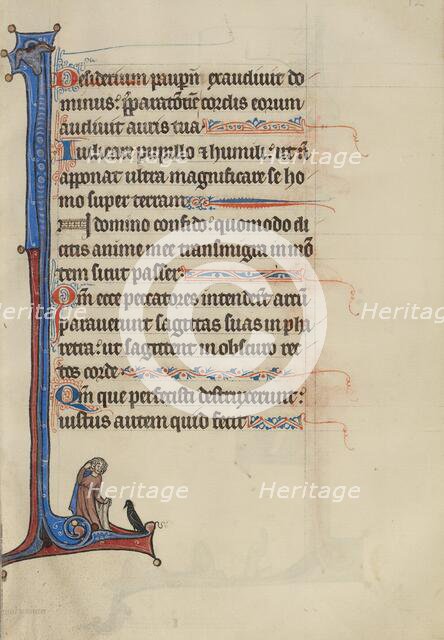 Desiderium paup̄ū exaudiuit do
minus: p̄paratōem cordis eorum
audiuit auris tua
Iudicare pupillo & humili: ut n̄
apponat ultra magnificare se ho
mo super terram
IN domino confido: quomodo di
citis anime mee transmigra in mō
tem sicut passer
Qm̄ ecce peccatores intender̄t arcū
parauerunt sagittas suas in pha
retra: ut sagittent in obscuro rec
tos corde
Qm̄ que perfecisti destruxerunt:
iustus autem quid fecit
Heritage
Heritage
Heritage
Heritage
Heritage
Heritage
Heritage
Heritage